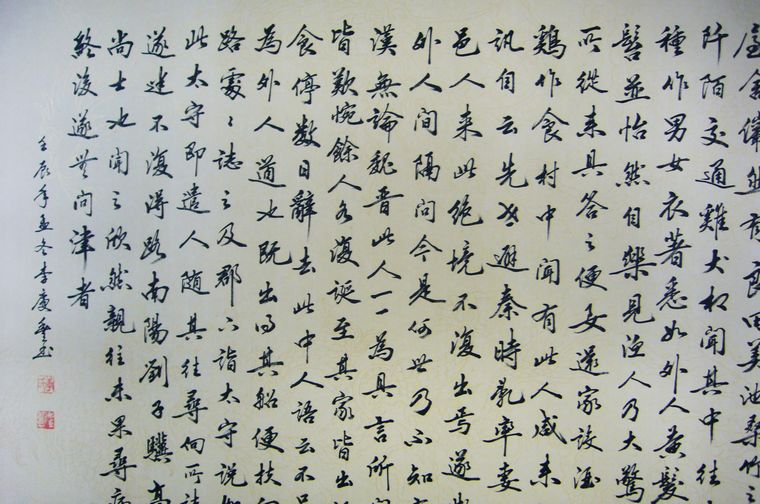 屋舍儼然有良田美池桑竹之
阡陌交通雞犬相聞其中往
種作男女衣著悉如外人黃髮
髫並怡然自樂見漁人乃大驚
所從來具答之便要還家設酒
鷄作食村中聞有此人咸來
訊自云先世避秦時亂率妻
邑人來此絕境不復出焉遂
外人間隔問今是何世乃不知有
漢無論魏晉此人一一為具言所聞
皆歎惋餘人各復誕至其家皆出
食停數日辭去此中人語云不足
為外人道也既出得其船便扶向
路處々誌之及郡下詣太守說如
此太守即遣人隨其往尋向所誌
遂迷不復得路南陽劉子驥高
尚士也聞之欣然親往未果尋病
終後遂無問津者
壬辰年孟冬李慶書